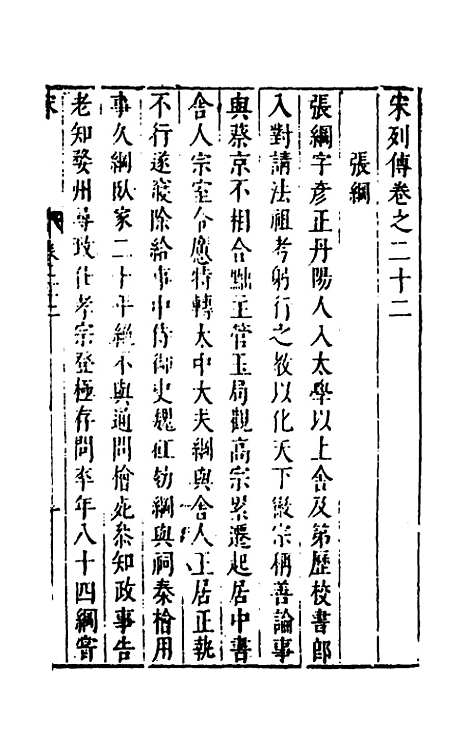 宋列傳卷之二十二
張綱
張綱字彥正丹陽人入太學以上舍及第歷校書郎
入對請法祖考躬行之教以化天下徽宗稱善論事
與蔡京不相合黜主管玉局觀高宗累遷起居中書
舍人宗室令懬特轉太中大夫綱與舍人王居正執
不行遂寢除給事中侍御史魏矼劾綱與祠秦檜用
事久綱臥家二十年絕不與通問檜死叅知政事告
老知婺州尋致仕孝宗登極存問卒年八十四綱嘗
宋 卷之二十二 一